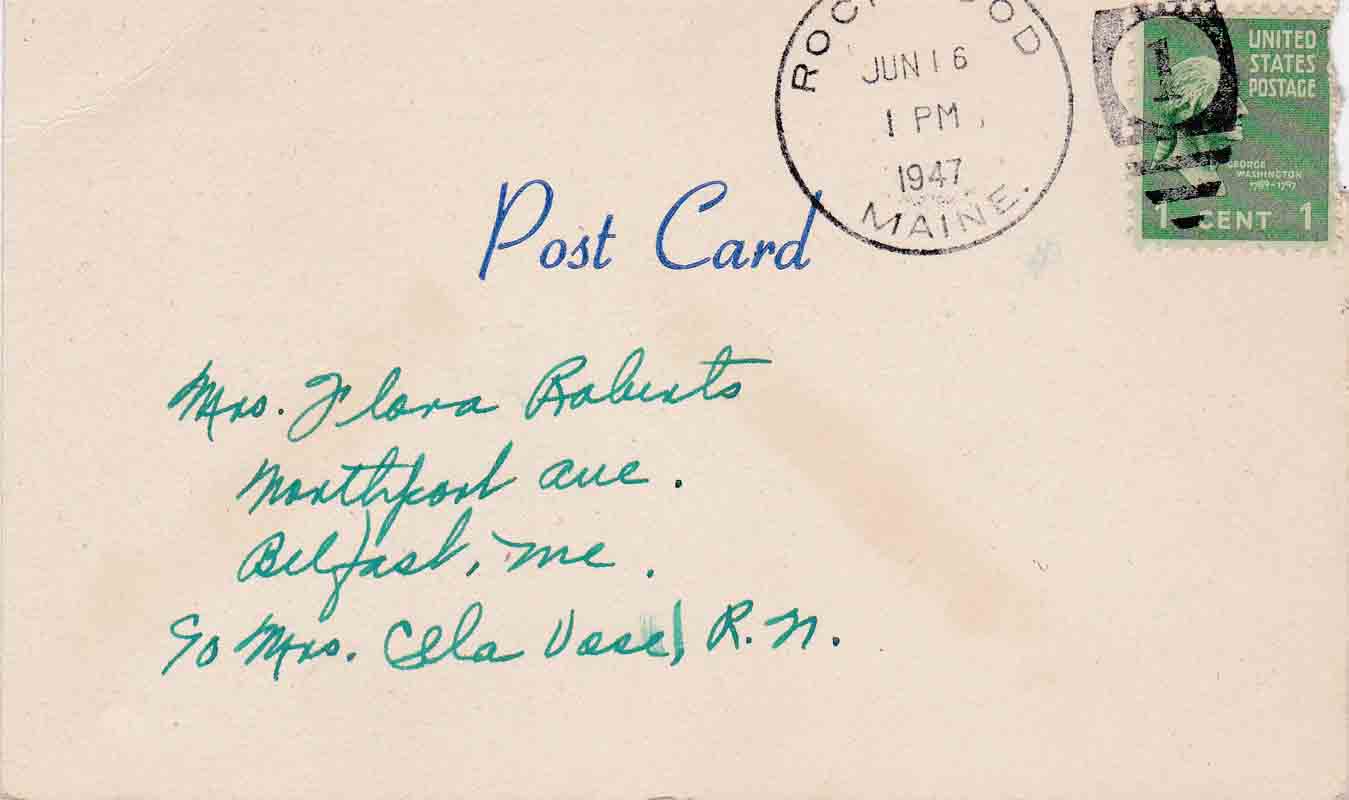 ROCKWOOD
JUN 16
1 PM
1947
MAINE.
1
UNITED
STATES
POSTAGE
GEORGE
WASHINGTON
1789-1797
1 CENT 1
Post Card
Mrs. Flora Roberts
Northport Ave.
Belfast, Me.
c/o Mrs. Vose, R.N.